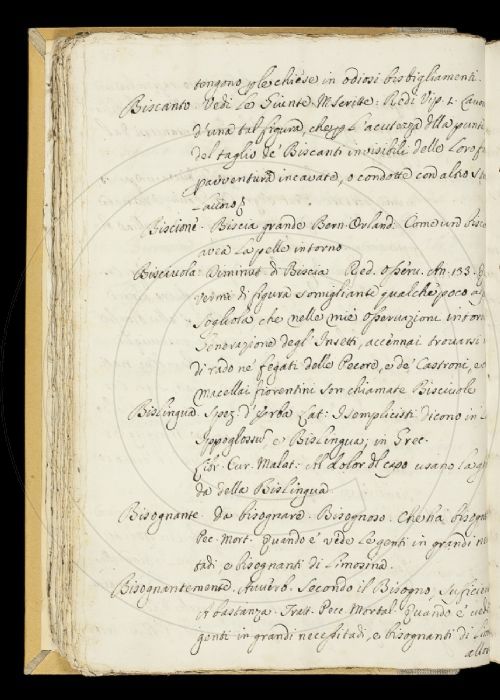 tengono p le chiese in odiosi bisbigliamenti.
Biscanto. Vedi le Giunte. M.scritte. Redi Vip. 1.
d'una tal figura, che p l'acutezza della punta
del taglio de' Biscanti invisibili delle loro
pavventura incavate, o condotte con altro
Lavoro.
Biscione. Biscia grande Bern. Orland. Come un
avea la pelle intorno
Bisciuola. Diminut. di Biscia. Red. Osserv. An. 133.
vermi di figura somigliante qualche poco a
sogliola che nelle mie osservazioni intorno
Generazione degl' Insetti, accennai trovarsi
di rado ne' fegati delle Pecore, e de' Castroni, e
macellai fiorentini son chiamate Bisciuole
Bislingua. Spez. d'Erba Lat: I semplicisti dicono in
Ippoglosso, e Bislingua; in Grec.
Libr. Cur. Malat: Al dolor del capo usano
da della Bislingua
Bisognante. da bisognare. Bisognoso. Che hà bisogno
Pec. Mort. Quando e' vede le genti in grandi
tadi, e bisognanti di limosina.
Bisognantemente. Avverb. Secondo il Bisogno,
A bastanza. Tratt. Pecc. Mortal. Quando e' vede
genti in grandi necessitadi, e bisognanti di